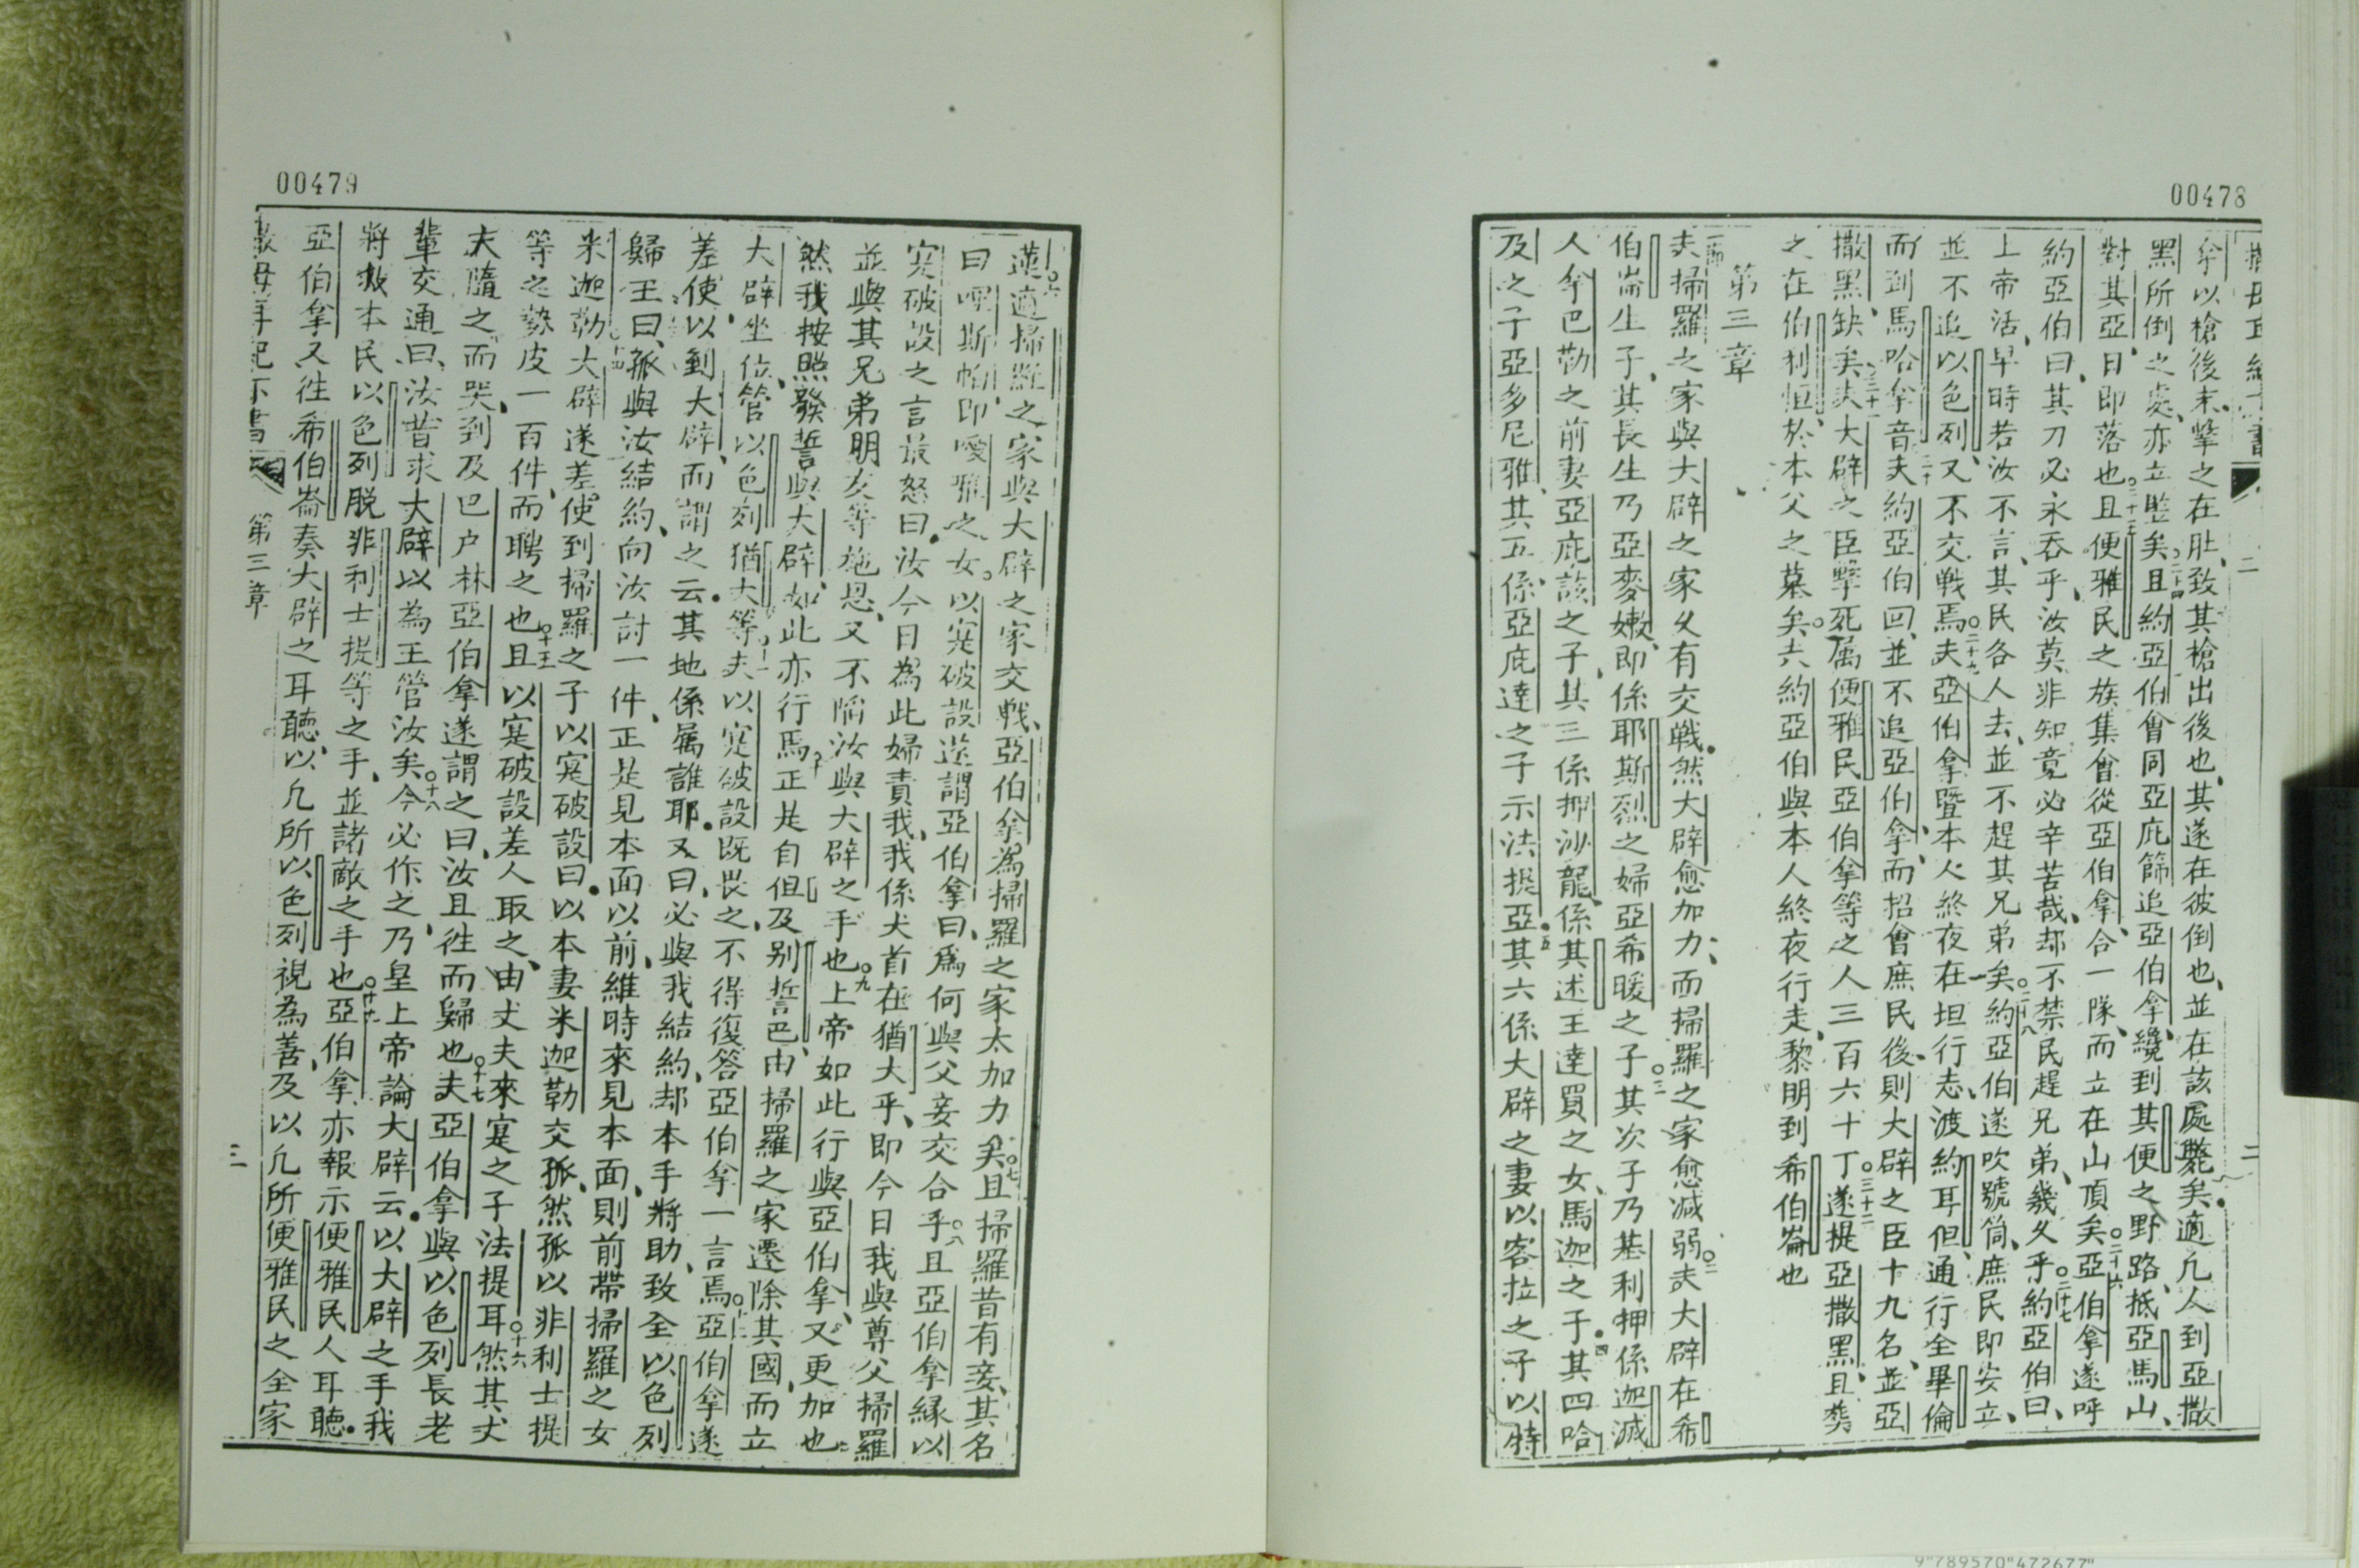 00478
拿以槍後末、擊之在肚、致其槍出後也、其遂在彼倒也、並在該處斃矣。適凡人到亞撒
黑所倒之處、亦立豎矣。二十四且約亞伯會同亞庇篩追亞伯拿、纔到其便之野路、抵亞馬山、
對其亞、日即落也。二十五且便雅民之族集會從亞伯拿、合一隊、而立在山頂矣。二十六亞伯拿遂呼
約亞伯曰、其刀必永吞乎、汝莫非知竟必辛苦哉、却不禁民趕兄弟、幾久乎。二十七約亞伯曰、
上帝活、早時若汝不言、其民各人去、並不趕其兄弟矣。二十八約亞伯遂吹號筒、庶民即安立、
並不追以色列、又不交戰焉。二十九夫亞伯拿暨本人終夜在坦行志、渡約耳但、通行全畢倫
而到馬哈拿音。三十夫約亞伯回、並不追亞伯拿、而招會庶民、後則大辟之臣十九名、並亞
撒黑缺矣。三十一夫大辟之臣擊死属便雅民亞伯拿等之人三百六十丁。三十二遂提亞撒黑、且葬
之在伯利恒、於本父之墓矣。夫約亞伯與本人終夜行走、黎明到希伯崙也
第三章
一節夫掃羅之家與大辟之家久有交戰。然大辟愈加力、而掃羅之家愈減弱。二夫大辟在希
伯崙生子、其長生乃亞麥嫩、即係耶斯烈之婦亞希暖之子。三其次子乃基利押係迦滅
人拿巴勒之前妻亞庇該之子、其三係押沙龍、係其述王達買之女、馬迦之子。四其四哈
及之子亞多尼雅、其五係亞庇達之子示法提亞。五其六係大辟之妻以客拉之子以特
00479
蓮。六適掃羅之家與大辟之家交戰、亞伯拿為掃羅之家太加力矣。七且掃羅昔有妾、其名
曰哩斯帕、即噯雅之女。以寔破設遂謂亞伯拿曰、爲何與父妾交合乎。八且亞伯拿緣以
寔破設之言最怒曰、汝今日為此婦責我、我係犬首在猶大乎、即今日我與尊父掃羅
並與其兄弟朋友等施恩、又不陷汝與大辟之手也。九上帝如此行與亞伯拿、又更加也
然我按照發誓與大辟、如此亦行焉。十正是自但及別誓巴、由掃羅之家遷除其國、而立
大辟坐位、管以色列猶大等。十一夫以寔破設既畏之、不得復答亞伯拿一言焉。十二亞伯拿遂
差使以到大辟、而謂之云。其地係属誰耶。又曰、必與我結約、却本手將助、致全以色列
歸王曰、孤與汝結約、向汝討一件、正是見本面以前、維時來見本面、則前帶掃羅之女
米迦勒。十四大辟遂差使到掃羅之子以寔破設曰。以本妻米迦勒交孤、然孤以非利士提
等之勢皮一百件、而聘之也。十五且以寔破設差人取之、由丈夫來寔之子法提耳。十六然其丈
夫隨之而哭、到及巴户林亞伯拿遂謂之曰、汝且徃而歸也。十七夫亞伯拿與以色列長老
輩交通曰、汝昔求大辟以為王管汝矣。十八今必作之、乃皇上帝論大辟云。以大辟之手我
將救本民以色列脱非利士提等之手、並諸敵之手也。十九亞伯拿亦報示便雅民人耳聽。
亞伯拿又徃希伯崙奏大辟之耳聽、以凡所以色列視為善、及以凡所便雅民之全家
第三章
三
9"789570"472677"